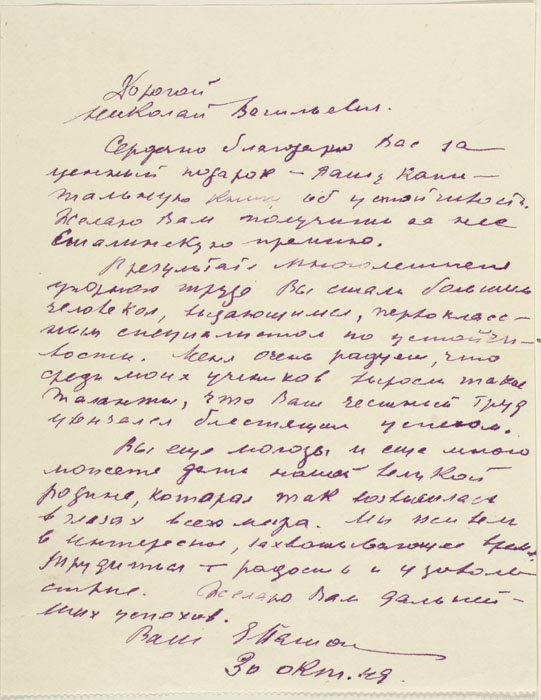 Дорогой
Николай Васильевич.
Сердечно благодарю Вас за
ценный подарок – Вашу капи-
тальную книгу об устойчивость.
Желаю Вам получить за нее
Сталинскую премию.
В результате многолетнего
упорного труда Вы стали большим
человеком, выдающимся, первокласс-
ным специалистом по устойчи-
вости. Меня очень радует, что
среди моих учеников выросли такие
таланты, что Ваш честный труд
увенчался блестящим успехом.
Вы еще молоды и еще много
можете дать нашей великой
родине, которая так возвысилась
в глазах всего мира. Мы живем
в интересное, захватывающее время.
Трудиться – радость и удоволь
ствие. Желаю Вам дальней-
ших успехов.
Ваш
30 окт. 49.